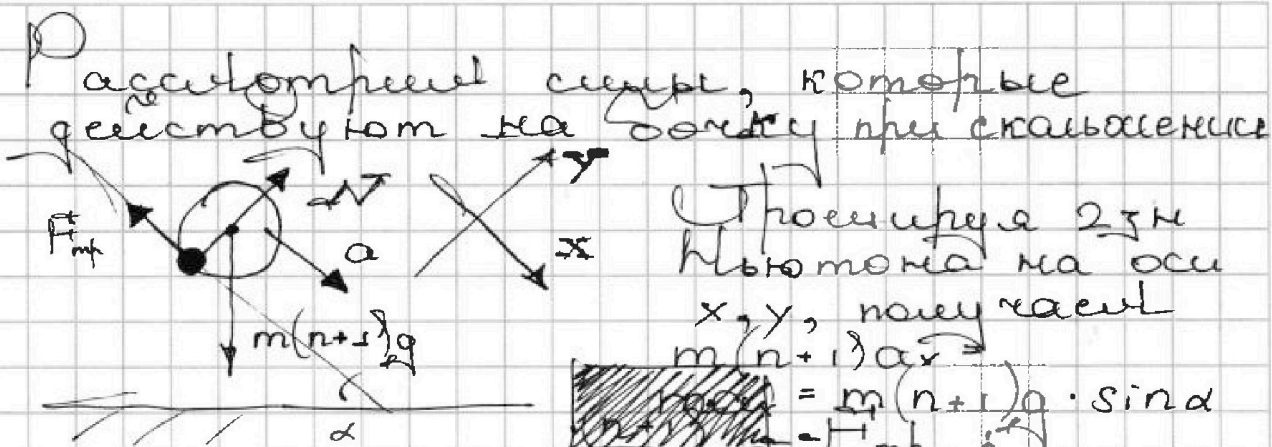 Рассмотрим силы, которые
действуют на бочку при скольжении
Fтр N a y x
m(n+1)g
α
Проецируя 2зн
Ньютона на оси
x, y, получаем
m(n+1)ax =
= m(n+1)g · sinα
- Fтр